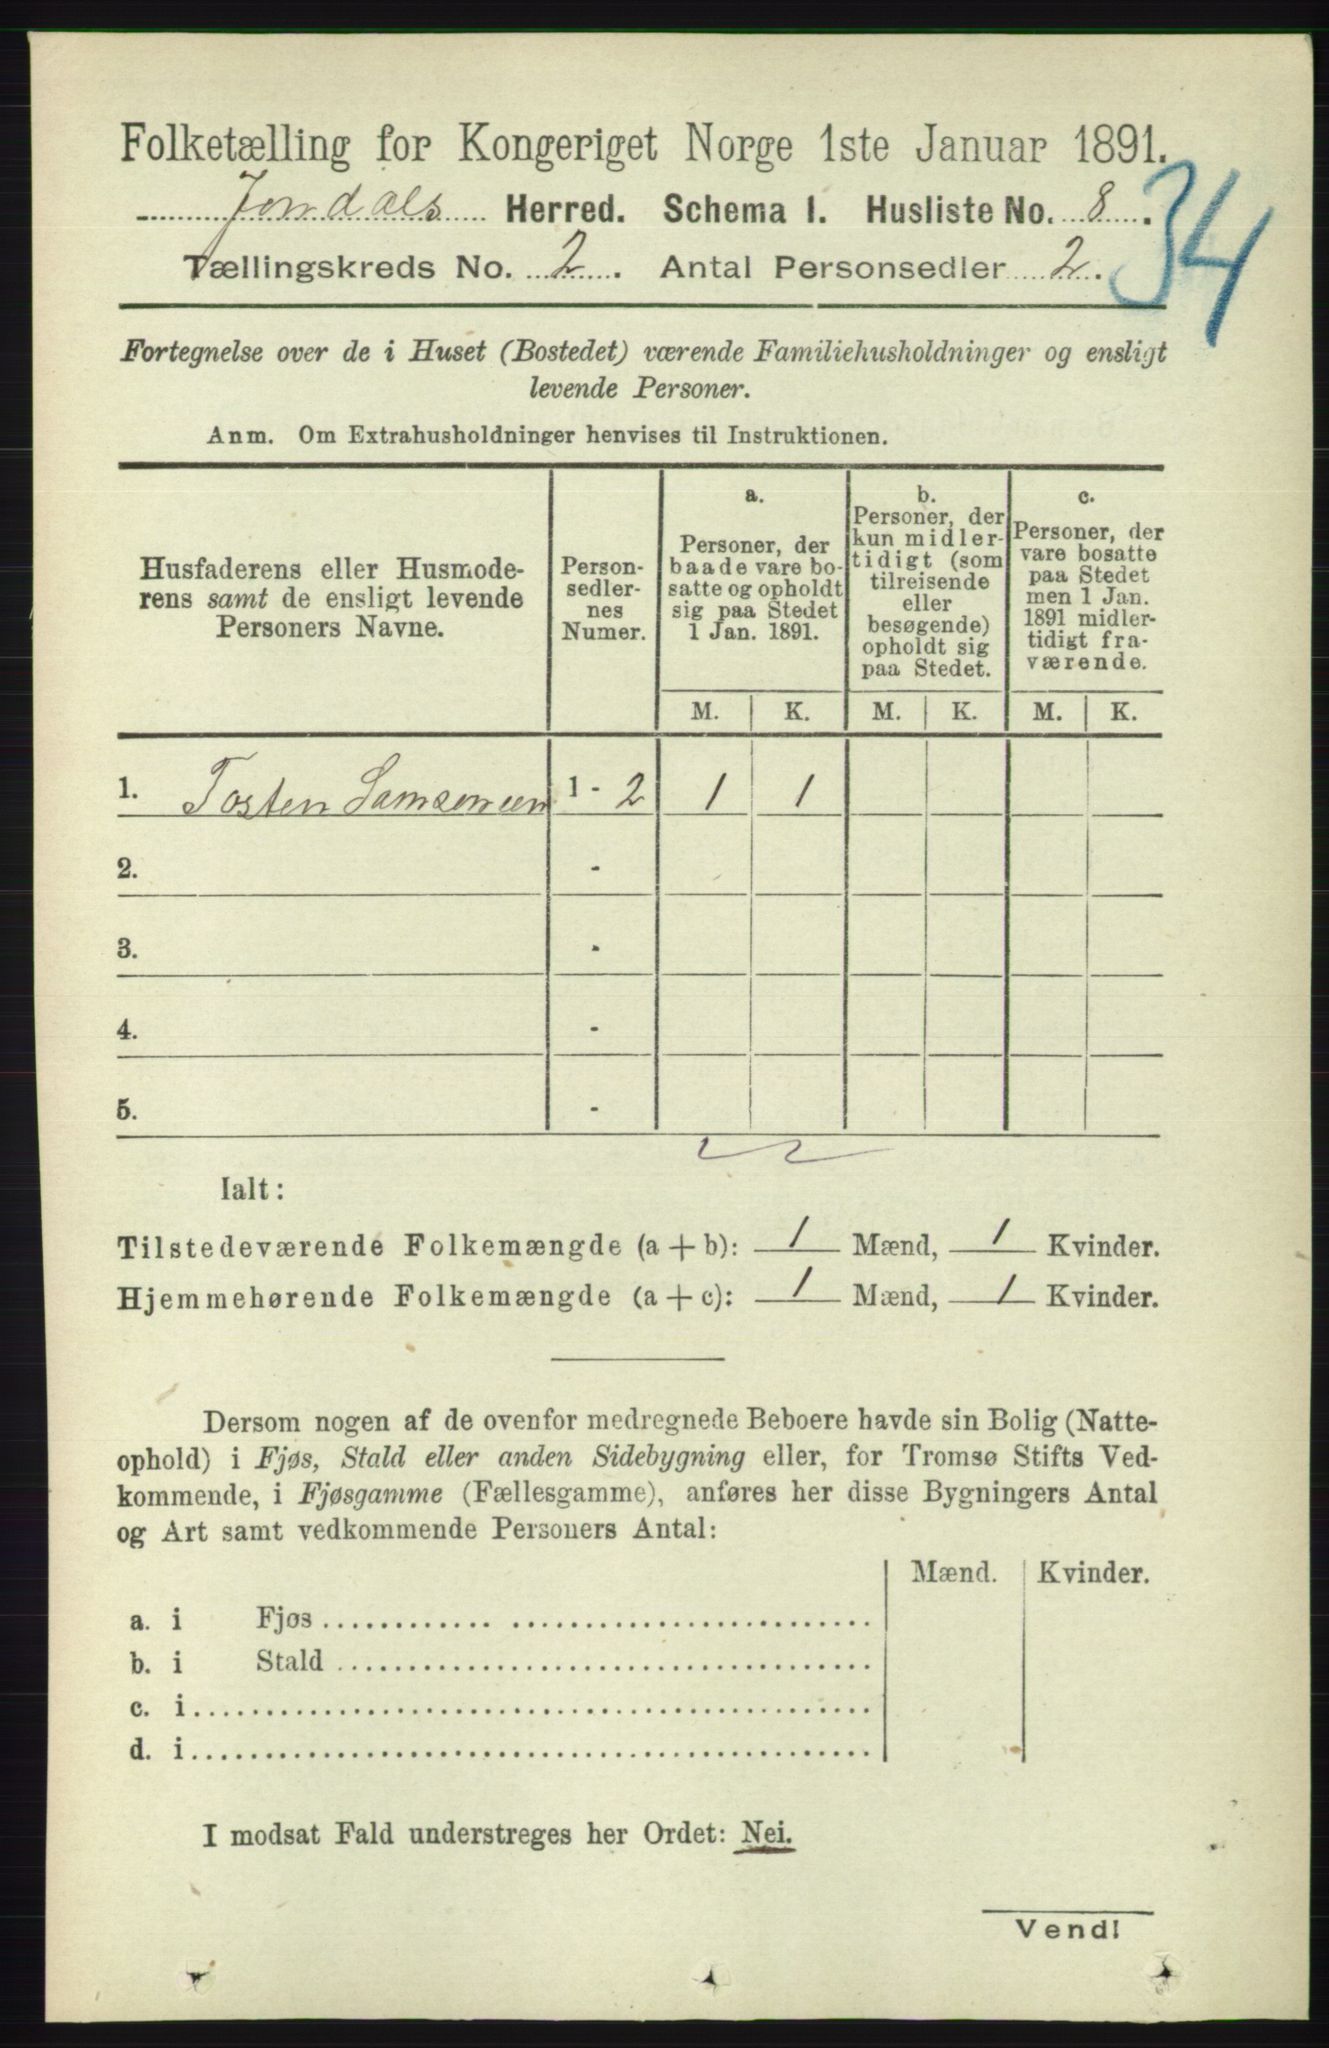 Folketælling for Kongeriget Norge 1ste Januar 1891.
Jondals Herred. Schema I. Husliste No. 8.
34
Tællingskreds No. 2. Antal Personsedler 2.
Fortegnelse over de i Huset (Bostedet) værende Familiehusholdninger og ensligt
levende Personer.
Anm. Om Extrahusholdninger henvises til Instruktionen.
Husfaderens eller Husmode-
rens samt de ensligt levende
Personers Navne.
Person-
sedler-
nes
Numer.
a.
Personer, der
baade vare bo-
satte og opholdt
sig paa Stedet
1 Jan. 1891.
b.
Personer, der
kun midler-
tidigt (som
tilreisende
eller
besøgende)
opholdt sig
paa Stedet.
c.
Personer, der
vare bosatte
paa Stedet
men 1 Jan.
1891 midler-
tidigt fra-
værende.
M. K. M. K. M. K.
1. Tosten Samsonsen 1 - 2 1 1
2. -
3. -
4. -
5. -
Ialt:
Tilstedeværende Folkemængde (a + b): 1 Mænd, 1 Kvinder.
Hjemmehørende Folkemængde (a + c): 1 Mænd, 1 Kvinder.
Dersom nogen af de ovenfor medregnede Beboere havde sin Bolig (Natte-
ophold) i Fjøs, Stald eller anden Sidebygning eller, for Tromsø Stifts Ved-
kommende, i Fjøsgamme (Fællesgamme), anføres her disse Bygningers Antal
og Art samt vedkommende Personers Antal:
Mænd. Kvinder.
a. i Fjøs
b. i Stald
c. i
d. i
I modsat Fald understreges her Ordet: Nei.
Vend!